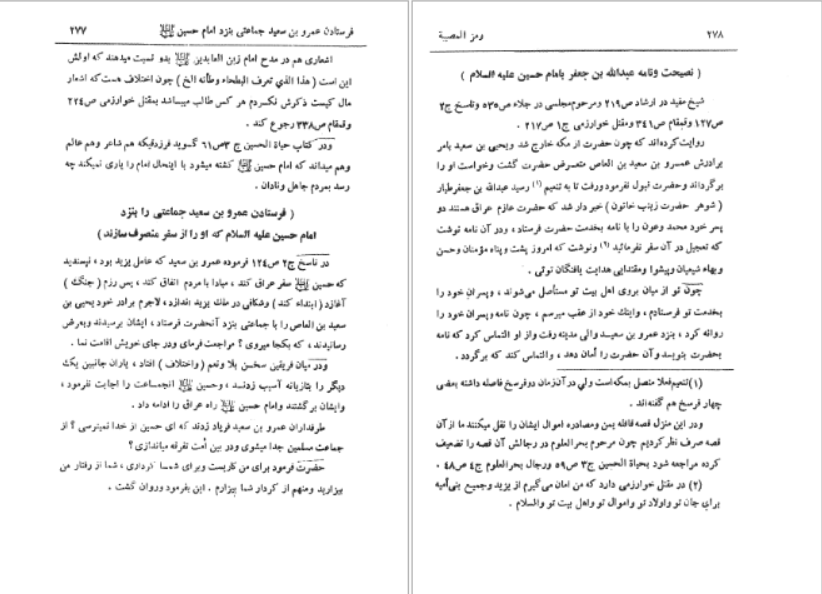 فرستادن عمرو بن سعید جماعتی بنزد امام حسین ۲۷۷
اشعاری هم در مدح امام زین العابدین بدو نسبت میدهند که اولش
این است ( هذا الذی تعرف البطحاء وطأته الخ ) چون اختلاف هست که اشعار
مال کیست ذکرش نکردم هر کس طالب میباشد بمقتل خوارزمی ص۲۲۴
وقمقام ص۳۳۸ رجوع کند .
ودر کتاب حیاة الحسین ج ۳ص۶۱ گسوید فرزدقیکه هم شاعر وهم عالم
وهم میداند که امام حسین کشته میشود با اینحال امام را یاری نمیکند چه
رسد بمردم جاهل ونادان .
( فرستادن عمرو بن سعید جماعتی را بنزد
امام حسین علیه السلام که او را از سفر منصرف سازند )
در ناسخ ج۲ ص۱۲۴ فرموده عمرو بن سعید که عامل یزید بود ، نپسندید
که حسین سفر عراق کند ، مبادا با مردم اتفاق کند ، پس رزم ( جنگ )
آغازد ( ابتداء کند ) وشکافی در ملك یزید اندازد ، لاجرم برادر خود یحیی بن
سعید بن العاص را با جماعتی بنزد آنحضرت فرستاد ، ایشان برسیدند وبعرض
رسانیدند ، که بکجا میروی ؟ مراجعت فرمای ودر جای خویش اقامت نما .
ودر میان فریقین سخن بلا ونعم ( واختلاف ) افتاد ، یاران جانبین یك
دیگر را بتازیانه آسیب زدنـد ، وحسین آنجماعت را اجابت نفرمود ،
وایشان برگشتند وامام حسین راه عراق را ادامه داد .
طرفداران عمرو بن سعید فریاد زدند که ای حسین از خدا نمیترسی ؟ از
جماعت مسلمین جدا میشوی ودر بین اُمت تفرقه میاندازی ؟
حضرت فرمود برای من کاریست وبرای شمـا کرداری ، شما از رفتار من
بیزارید ومنهم از کردار شما بیزارم . این بفرمود وروان گشت .
رمز المصیبة ۲۷۸
( نصیحت ونامه عبدالله بن جعفر بامام حسین علیه السلام )
شیخ مفید در ارشاد ص۲۱۹ ومرحوم مجلسی در جلاء ص۵۳۵ وناسخ ج۲
ص۱۲۷ وقمقام ص۳۴۱ ومقتل خوارزمی ج۱ ص۲۱۷ .
روایت کرده‌اند که چون حضرت از مکه خارج شد ویحیی بن سعید بامر
برادرش عمسرو بن سعید بن العاص متعرض حضرت گشت وخواست او را
برگرداند وحضرت قبول نفرمود ورفت تا به تنعیم (۱) رسید عبدالله بن جعفرطیار
( شوهر حضرت زینب خاتون ) خبردار شد که حضرت عازم عراق هستند دو
پسر خود محمد وعون را با نامه بخدمت حضرت فرستاد ، ودر آن نامه نوشت
که تعجیل در آن سفر نفرمائید (۲) ونوشت که امروز پشت وپناه مؤمنان وحسن
وبهاء شیعیان وپیشوا ومقتدایی هدایت یافتگان توئی .
چون تو از میان بروی اهل بیت تو مستأصل می‌شوند ، وپسران خود را
بخدمت تو فرستادم ، واینك خود از عقب میرسم ، چون نامه وپسران خود را
روانه کرد ، بنزد عمرو بن سعیـد والی مدینه رفت واز او التماس کرد که نامه
بحضرت بنویسد وآن حضرت را اَمان دهد ، والتماس کند که برگردد .
(۱)تنعیم فعلا متصل بمکه است ولی در آن زمان دوفرسخ فاصله داشته بعضی
چهار فرسخ هم گفته‌اند .
ودر این منزل قصه قافله یمن ومصادره اموال ایشان را نقل میکنند ما از آن
قصه صرف نظر کردیم چون مرحوم بحرالعلوم در رجالش آن قصه را تضعیف
کرده مراجعه شود بحیاة الحسین ج۳ ص۵۹ ورجال بحرالعلوم ج۴ ص۴۸ .
(۲) در مقتل خوارزمی دارد که من امان می‌گیرم از یزید وجمیع بنی‌امیه
برای جان تو واولاد تو واموال تو واهل بیت تو والسلام .